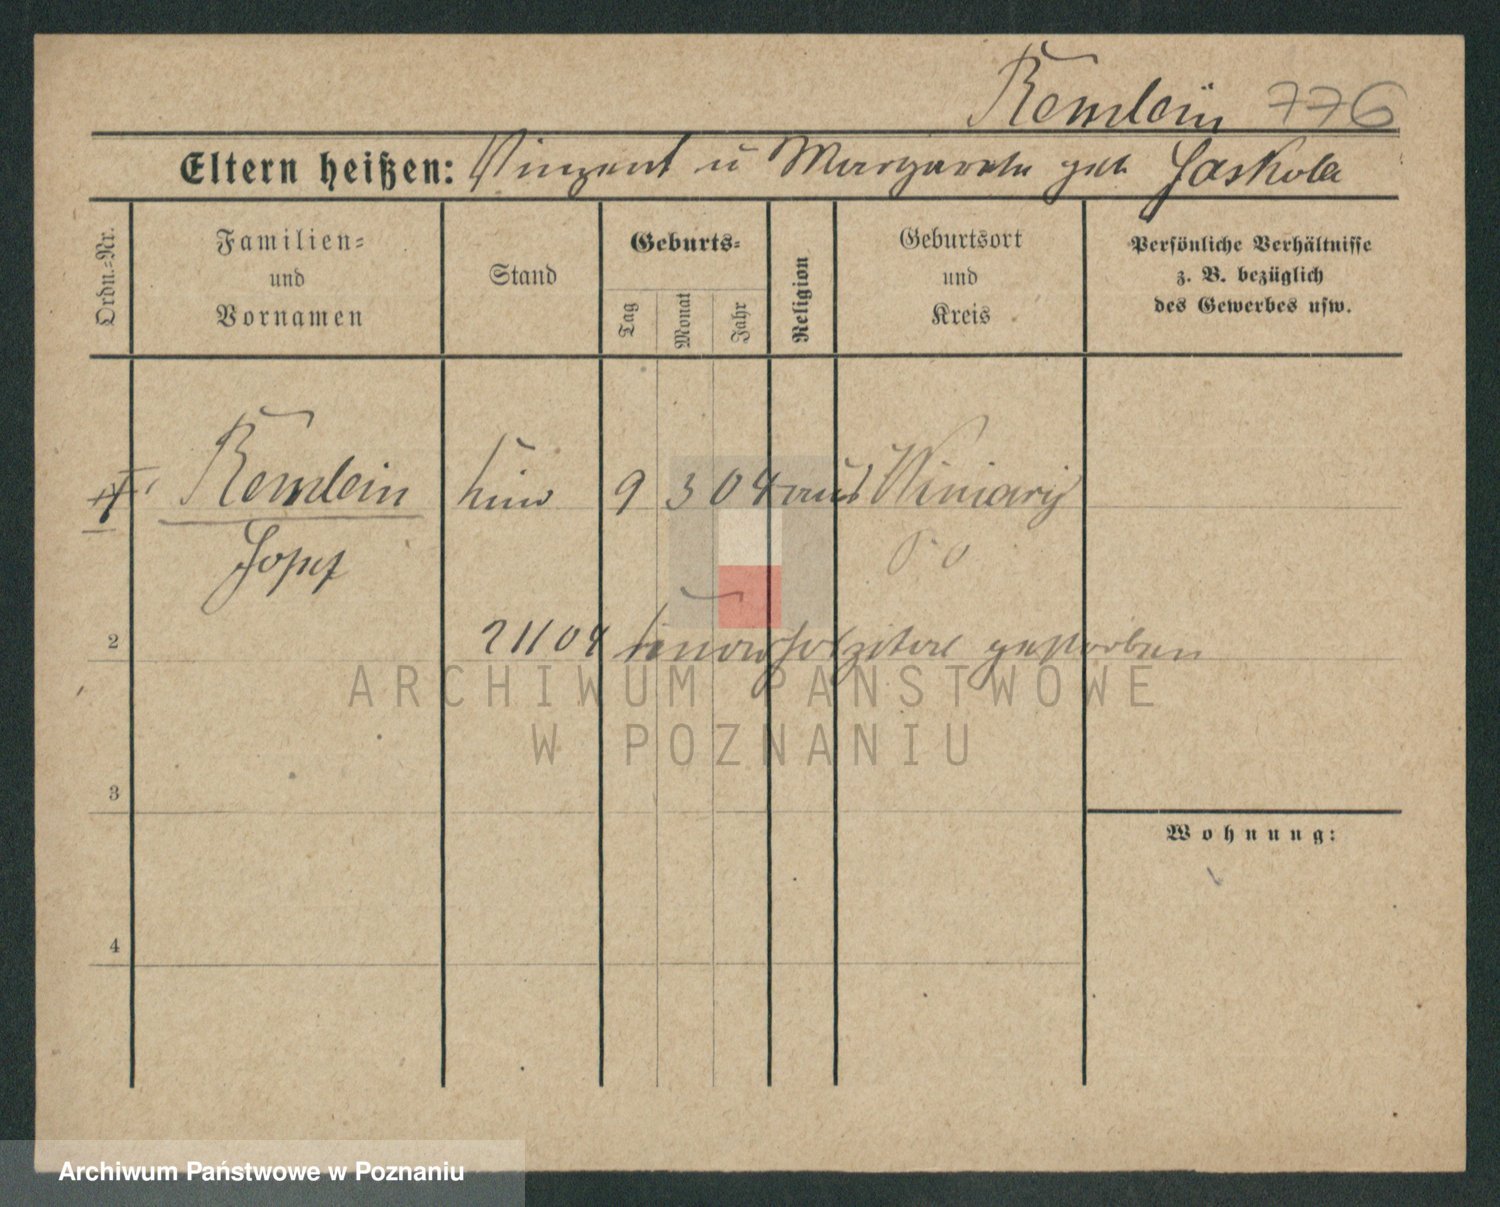 Remlein 776
Eltern heißen: Vinzent u Margarete geb Jaskola
Ordn.-Nr.
Familien- und Vornamen
Stand
Geburts-
Tag
Monat
Jahr
Religion
Geburtsort und Kreis
Persönliche Verhältnisse z. B. bezüglich des Gewerbes usw.
Remlein Kind 9 3 04 Winiary
Josef
2 21104 gestorben
3
Wohnung:
4
ARCHIWUM PAŃSTWOWE
W POZNANIU
Archiwum Państwowe w Poznaniu